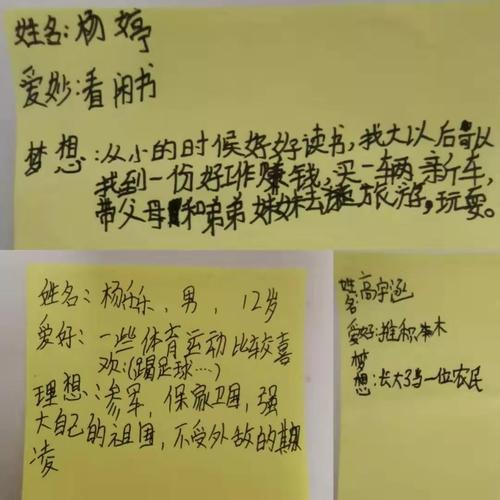 姓名:杨婷
爱妙:看闲书
梦想:从小的时候好好读书,我大以后可以
找到一份好工作赚钱,买一辆新车,
带父母和弟弟妹妹去旅游,玩耍。
姓名:杨乐乐,男,12岁
爱好:一些体育运动比较喜
欢:(踢足球…)
理想:参军,保家卫国,强
大自己的祖国,不受外敌的欺
凌
姓名:高宇涵
爱好:推积木
梦想:长大了当一位农民